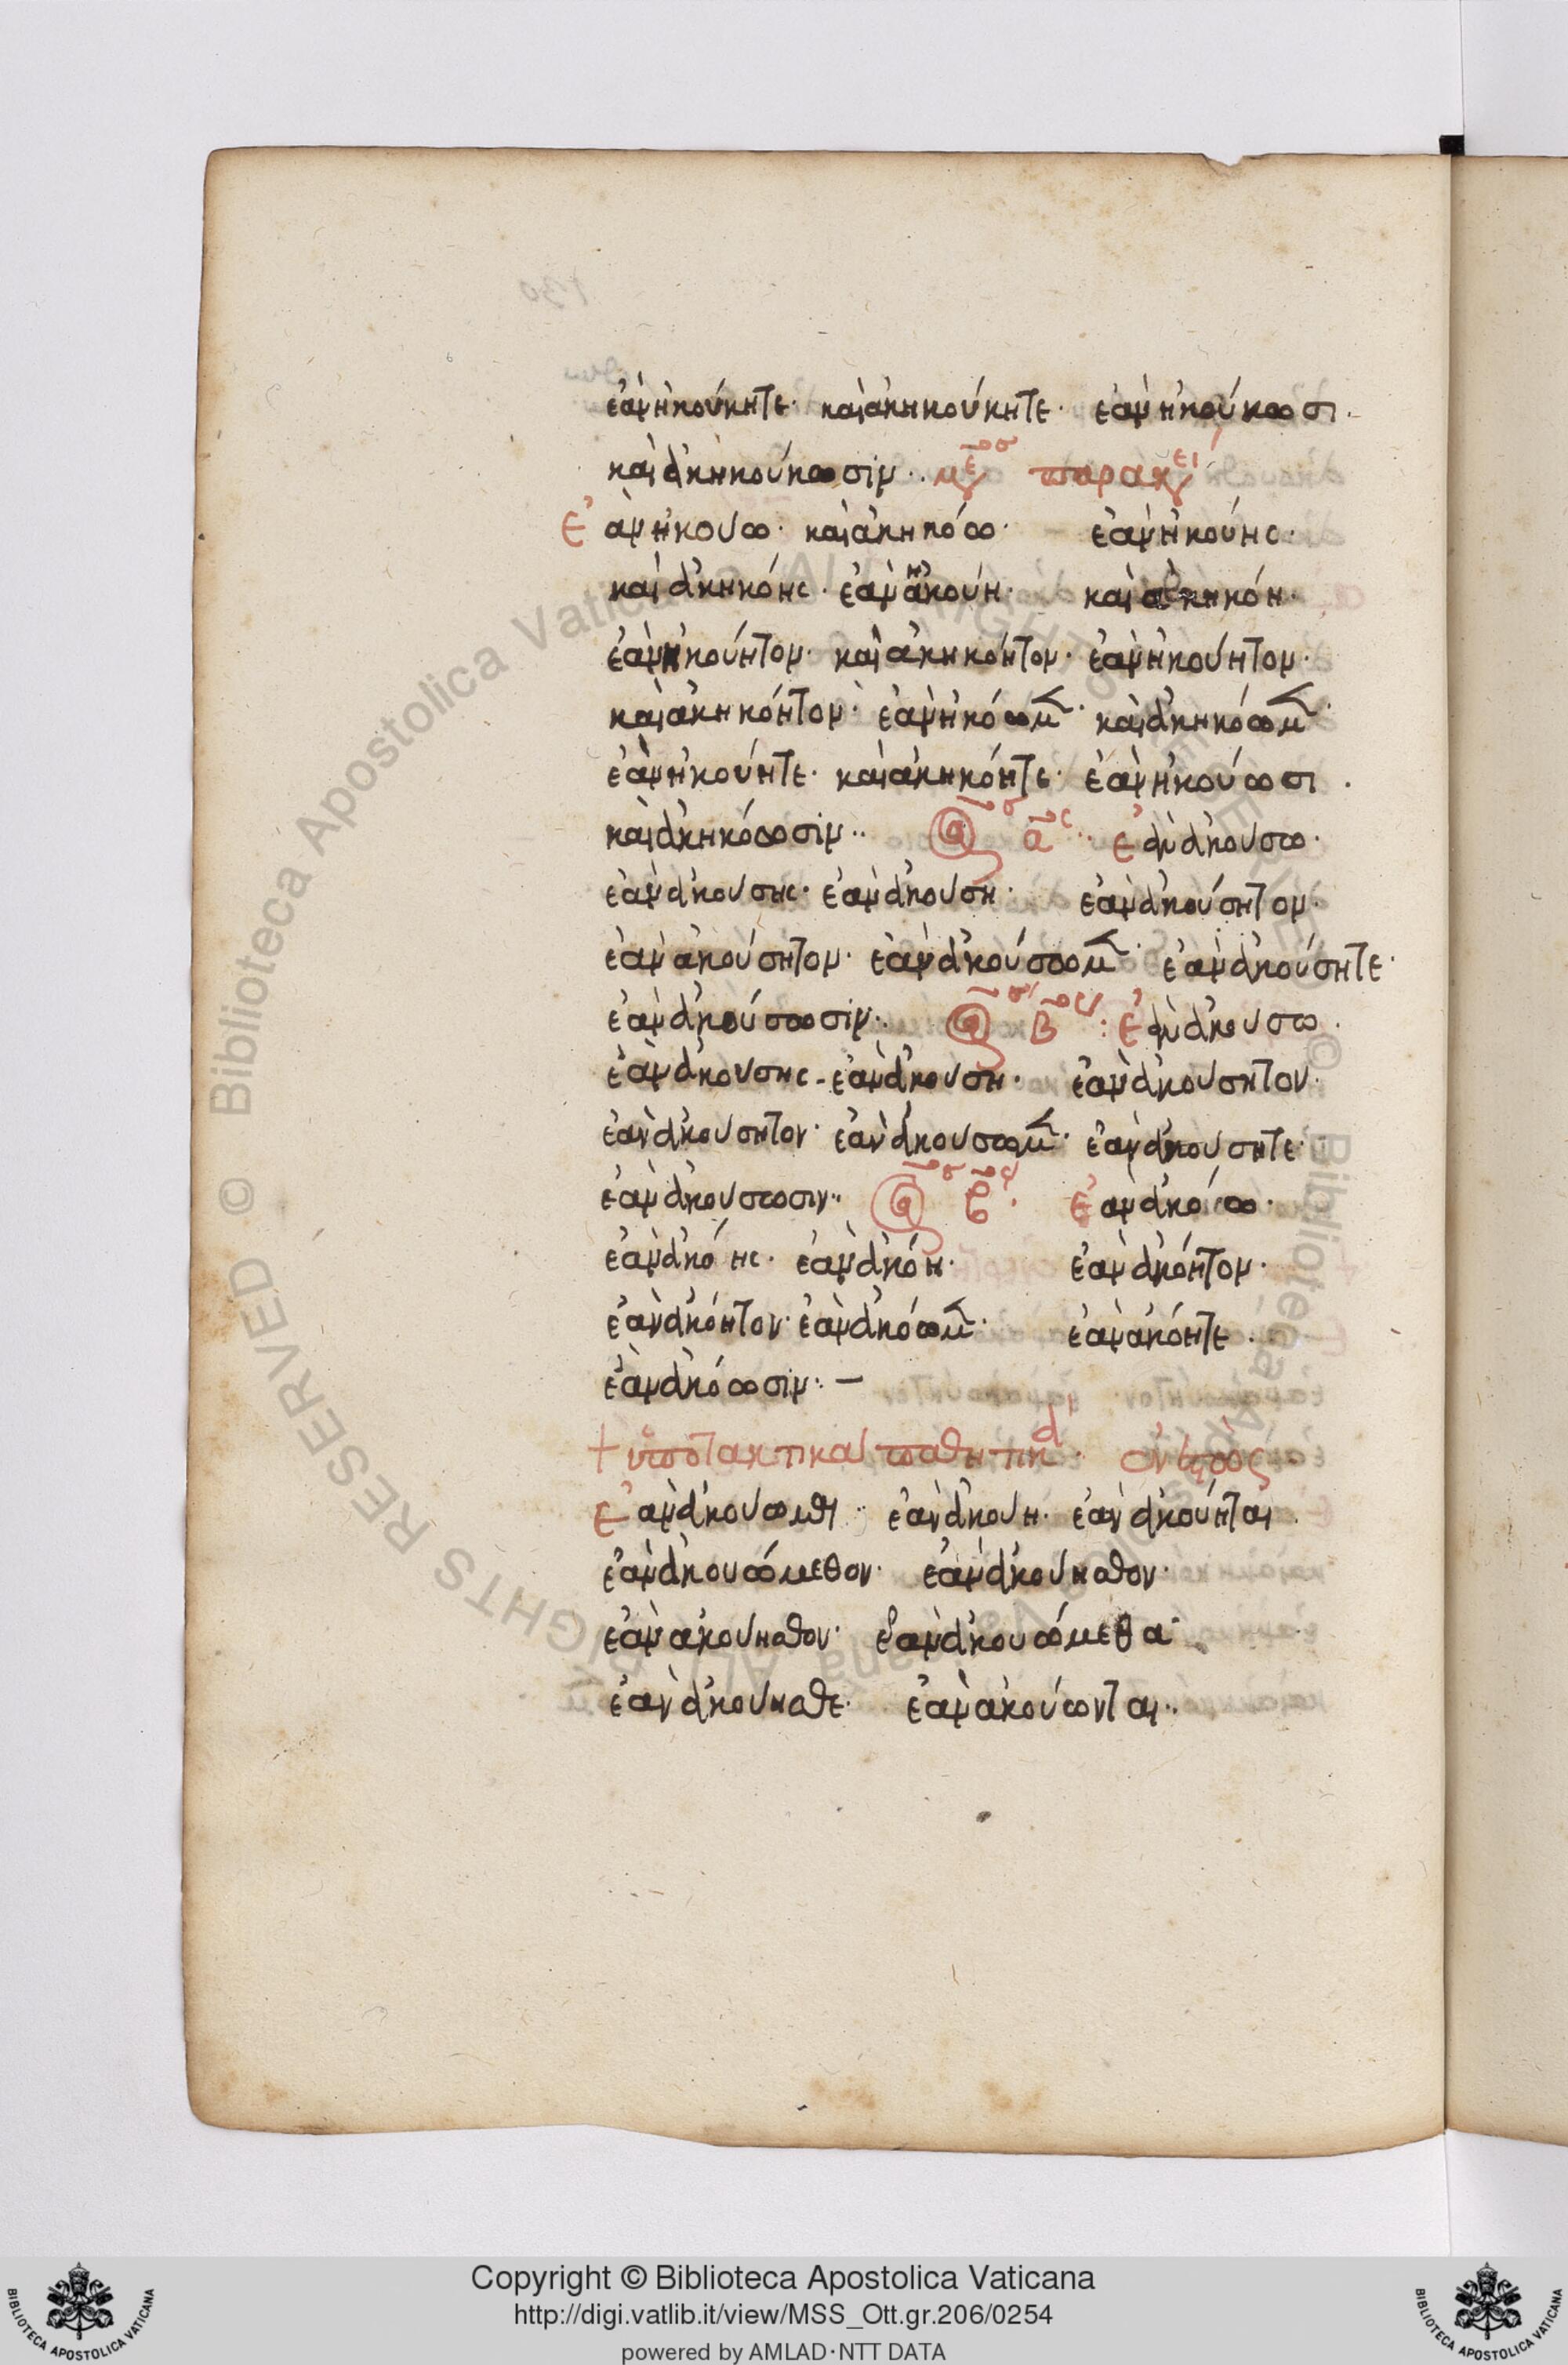 ἐὰν ἠκούκητε· καὶ ἀκηκούκητε· ἐὰν ἠκούκωσι·
καὶ ἀκηκούκωσιν·· παρακει
Ἐὰν ἤκουω· καὶ ἀκηκόω· ἐὰν ἠκούης·
καὶ ἀκηκόης· ἐὰν ἠκούη· καὶ ἀκηκόη·
ἐὰν ἠκούητον· καὶ ἀκηκόητον· ἐὰν ἠκούητον·
καὶ ἀκηκόητον· ἐὰν ἠκόωμ· καὶ ἀκηκόωμ·
ἐὰν ἠκούητε· καὶ ἀκηκόητε· ἐὰν ἠκούωσι·
καὶ ἀκηκόωσιν·· α· Ἐὰν ἀκουσω·
ἐὰν ἀκουσης· ἐὰν ἀκουση· ἐὰν ἀκούσητον·
ἐὰν ἀκούσητον· ἐὰν ἀκούσωμ· ἐὰν ἀκούσητε·
ἐὰν ἀκούσωσιν·· β: Ἐὰν ἀκουσω·
ἐὰν ἀκουσης· ἐὰν ἀκουση· ἐὰν ἀκουσητον·
ἐὰν ἀκουσητον· ἐὰν ἀκουσωμ· ἐὰν ἀκουσητε·
ἐὰν ἀκουσωσιν·· β· Ἐὰν ἀκόω·
ἐὰν ἀκόης· ἐὰν ἀκόη· ἐὰν ἀκόητον·
ἐὰν ἀκόητον· ἐὰν ἀκόωμ· ἐὰν ἀκόητε·
ἐὰν ἀκόωσιν·: —
+ ὑποτακτικα παθητικα· ἐνεστὼς
Ἐὰν ἀκουωμαι·· ἐὰν ἀκουη· ἐὰν ἀκούηται·
ἐὰν ἀκουώμεθον· ἐὰν ἀκούησθον·
ἐὰν ἀκουησθον· ἐὰν ἀκουώμεθα·
ἐὰν ἀκουησθε· ἐὰν ἀκούωνται··
Copyright © Biblioteca Apostolica Vaticana
http://digi.vatlib.it/view/MSS_Ott.gr.206/0254
powered by AMLAD·NTT DATA